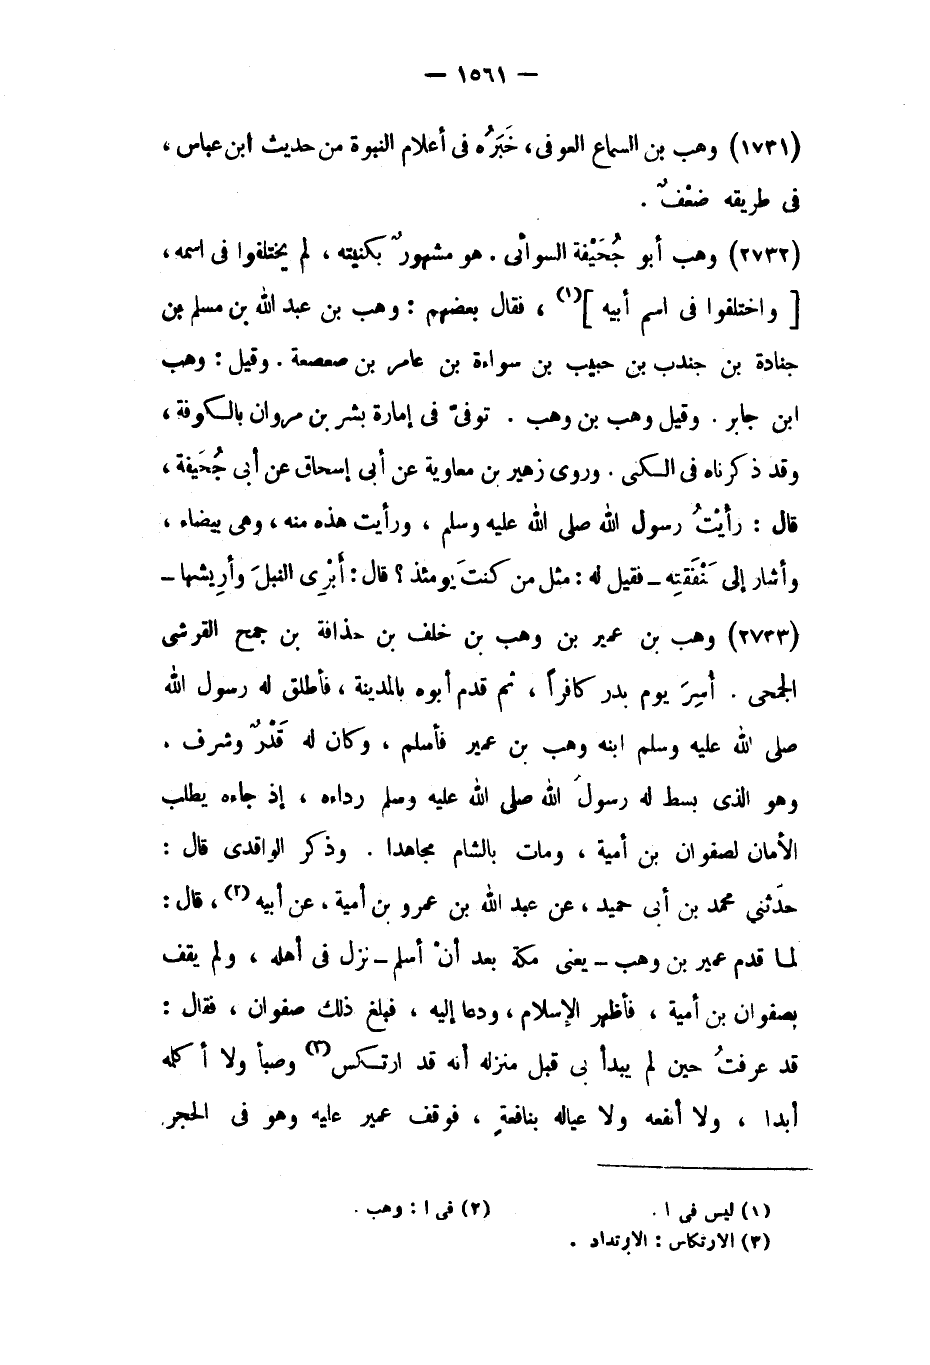 — ١٥٦١ —
(١٧٣١) وهب بن السماع العوفى، خَبَرُه فى أعلام النبوة من حديث ابن عباس ،
فى طريقه ضعْفٌ .
(٢٧٣٢) وهب أبو جُحَيْفة السوائى . هو مشهورٌ بكنيته ، لم يختلفوا فى اسمه ،
[ واختلفوا فى اسم أبيه ](١) ، فقال بعضهم : وهب بن عبد الله بن مسلم بن
جنادة بن جندب بن حبيب بن سواءة بن عامر بن صعصعة . وقيل : وهب
ابن جابر . وقيل وهب بن وهب . توفىّ فى إمارة بشر بن مروان بالكوفة ،
وقد ذكرناه فى الكنى . وروى زهير بن معاوية عن أبى إسحاق عن أبى جُحَيفة ،
قال : رأيْتُ رسول الله صلى الله عليه وسلم ، ورأيت هذه منه ، وهى بيضاء ،
وأشار إلى عَنْفَقتِه – فقيل له : مثل من كنتَ يومئذ ؟ قال : أَبْرِى النبلَ وأرِيشها –
(٢٧٣٣) وهب بن عمير بن وهب بن خلف بن حذافة بن جمح القرشى
الجمحى . أُسِرَ يوم بدر كافراً ، ثم قدم أبوه بالمدينة ، فأطلق له رسول الله
صلى الله عليه وسلم ابنه وهب بن عمير فأسلم ، وكان له قَدْرٌ وشرف .
وهو الذى بسط له رسولُ الله صلى الله عليه وسلم رداءه ، إذ جاءه يطلب
الأمان لصفوان بن أمية ، ومات بالشام مجاهدا . وذكر الواقدى قال :
حدّثني محمد بن أبى حميد ، عن عبد الله بن عمرو بن أمية ، عن أبيه (٢) ، قال :
لما قدم عمير بن وهب – يعنى مكة بعد أنْ أسلم – نزل فى أهله ، ولم يقف
بصفوان بن أمية ، فأظهر الإسلام ، ودعا إليه ، فبلغ ذلك صفوان ، فقال :
قد عرفتُ حين لم يبدأ بى قبل منزله أنه قد ارتكس(٣) وصبأ ولا أكلمه
أبدا ، ولا أنفعه ولا عياله بنافعةٍ ، فوقف عمير عليه وهو فى الحجر.
(١) ليس فى ا . (٢) فى ا : وهب .
(٣) الارتكاس : الارتداد .